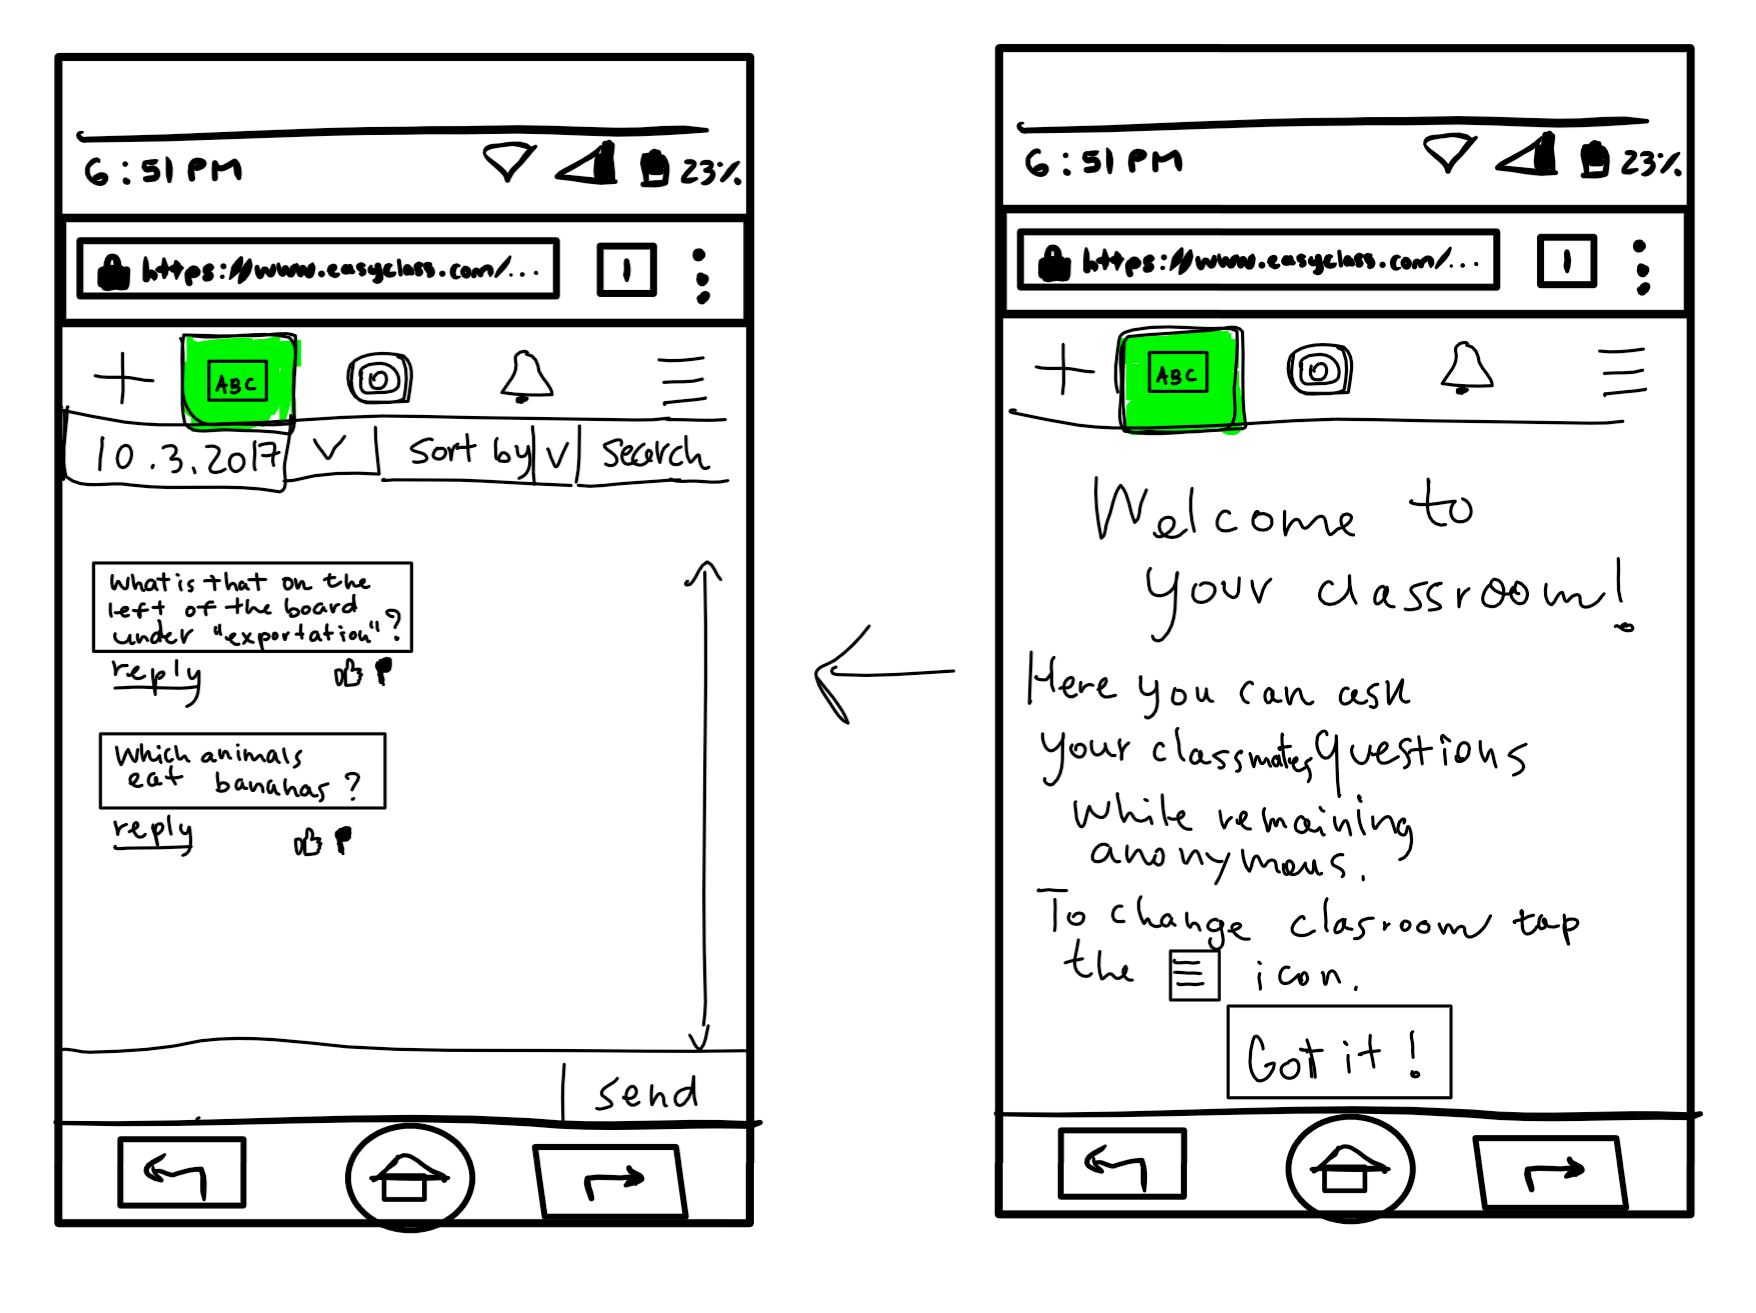 6:51 PM 23%
https://www.easyclass.com/...
1
ABC
10.3.2017 Sort by Search
What is that on the
left of the board
under "exportation"?
reply
Which animals
eat bananas?
reply
Send
6:51 PM 23%
https://www.easyclass.com/...
1
ABC
Welcome to
your classroom!
Here you can ask
your classmates questions
while remaining
anonymous.
To change clasroom tap
the icon.
Got it!